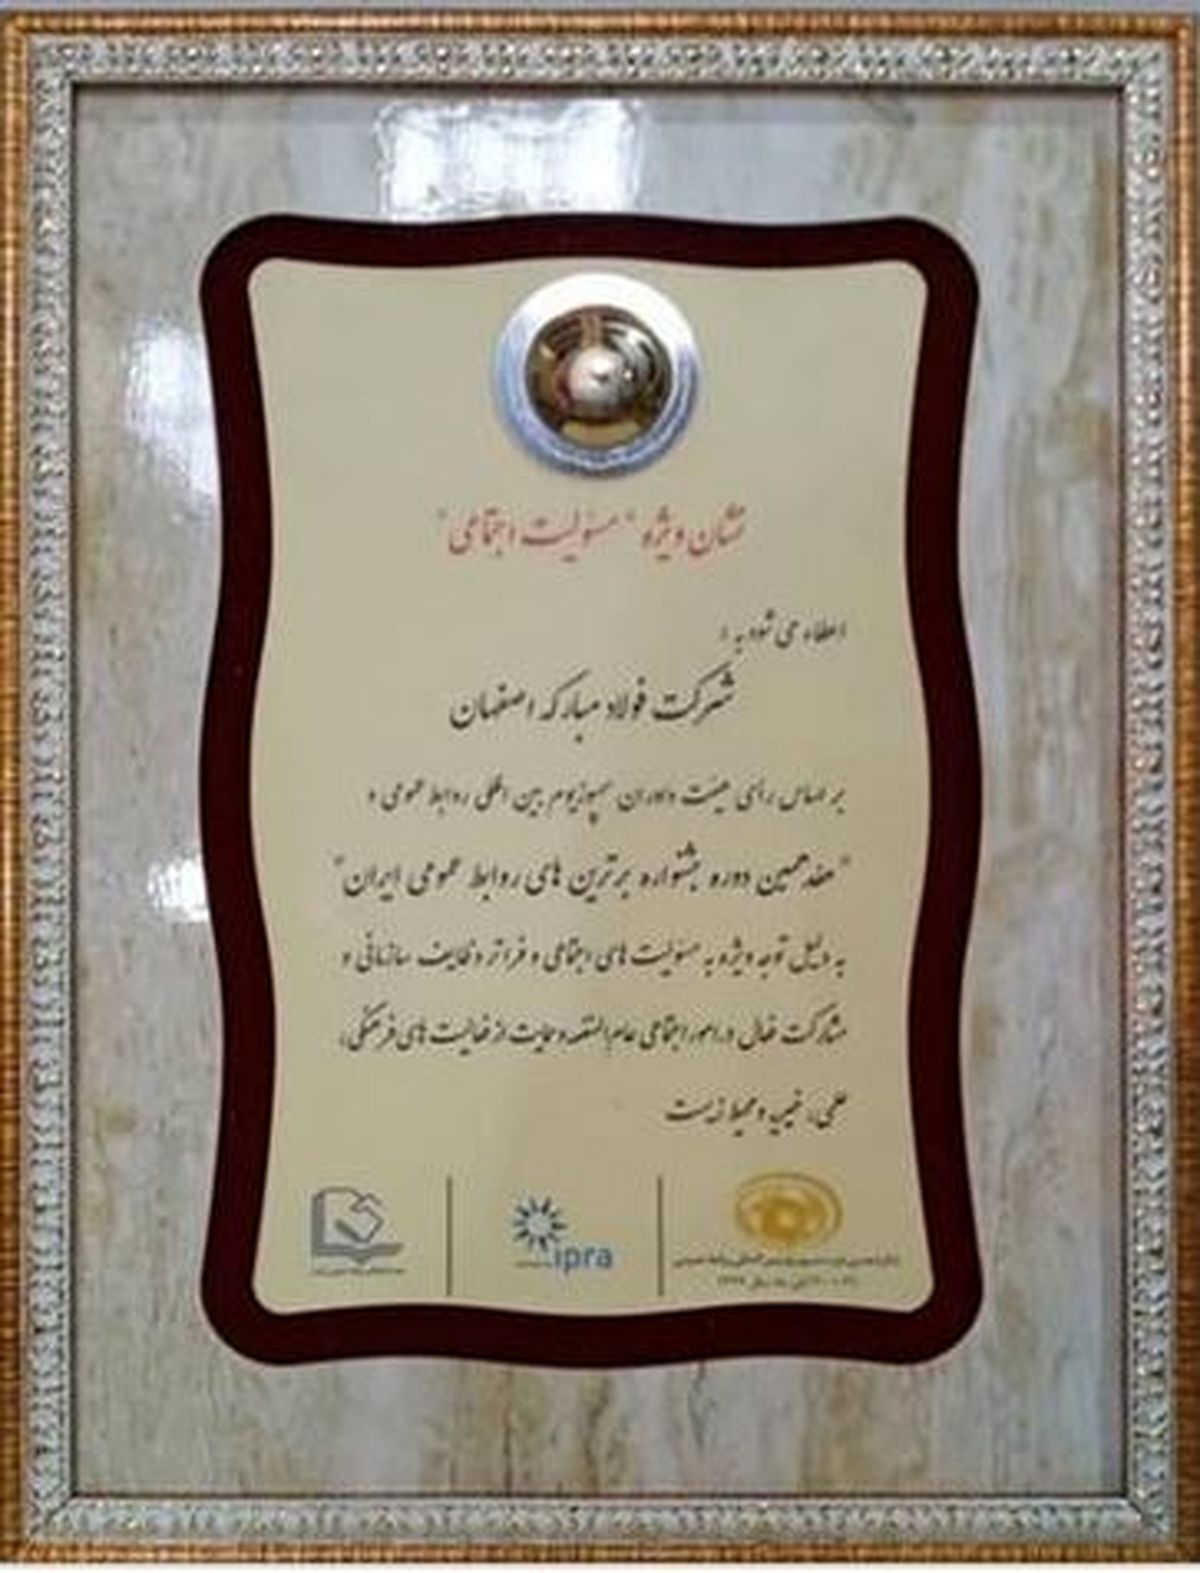 نشان ویژه "مسئولیت اجتماعی"
اعطاء می شود به :
شرکت فولاد مبارکه اصفهان
بر اساس رأی هیئت داوران سمپوزیوم بین المللی روابط عمومی و
"هفدهمین دوره جشنواره برترین های روابط عمومی ایران"
به دلیل توجه ویژه به مسئولیت های اجتماعی و فراتر وظایف سازمانی و
مشارکت فعال در امور اجتماعی عام المنفعه و حمایت از فعالیت های فرهنگی،
علمی، خیریه و محیط زیست
ipra